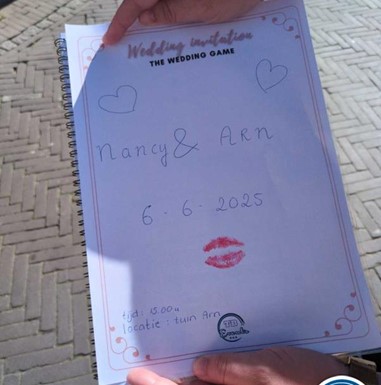 Wedding invitation
THE WEDDING GAME
Nancy & Arn
6 . 6 . 2025
locatie : tuin Arn